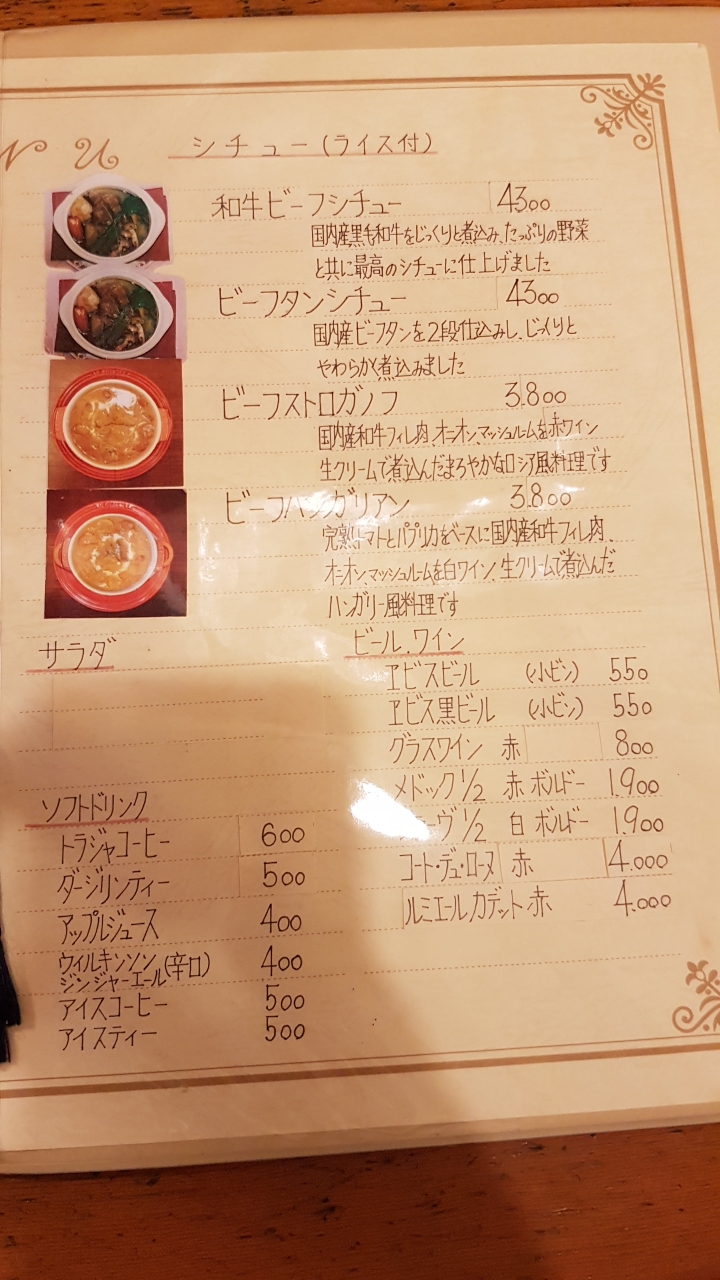 NU
シチュー(ライス付)
和牛ビーフシチュー 4300
国内産黒毛和牛をじっくりと煮込み、たっぷりの野菜
と共に最高のシチューに仕上げました
ビーフタンシチュー 4300
国内産ビーフタンを2段仕込みし、じっくりと
やわらかく煮込みました
ビーフストロガノフ 3.800
国内産和牛フィレ肉、オニオン、マッシュルームを赤ワイン
生クリームで煮込んだまろやかなロシア風料理です
ビーフハンガリアン 3.800
完熟トマトとパプリカをベースに国内産和牛フィレ肉、
オニオン、マッシュルームを白ワイン、生クリームで煮込んだ
ハンガリー風料理です
サラダ
ソフトドリンク
トラジャコーヒー 600
ダージリンティー 500
アップルジュース 400
ウィルキンソン
ジンジャーエール(辛口) 400
アイスコーヒー 500
アイスティー 500
ビール.ワイン
ヱビスビール (小ビン) 550
ヱビス黒ビール (小ビン) 550
グラスワイン 赤 800
メドック1/2 赤 ボルドー 1.900
ーヴ1/2 白 ボルドー 1.900
コート・デュ・ローヌ 赤 4.000
ルミエールカデット赤 4.000